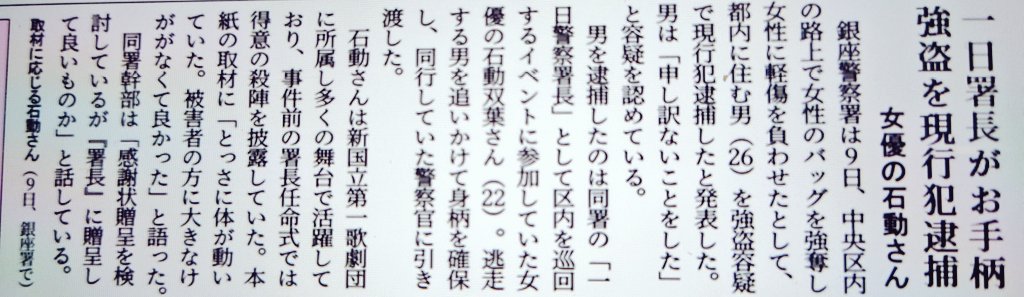 一日署長がお手柄
強盗を現行犯逮捕
女優の石動さん
銀座警察署は9日、中央区内
の路上で女性のバッグを強奪し
女性に軽傷を負わせたとして、
都内に住む男（26）を強盗容疑
で現行犯逮捕したと発表した。
男は「申し訳ないことをした」
と容疑を認めている。
男を逮捕したのは同署の「一
日警察署長」として区内を巡回
するイベントに参加していた女
優の石動双葉さん（22）。逃走
する男を追いかけて身柄を確保
し、同行していた警察官に引き
渡した。
石動さんは新国立第一歌劇団
に所属し多くの舞台で活躍して
おり、事件前の署長任命式では
得意の殺陣を披露していた。本
紙の取材に「とっさに体が動い
ていた。被害者の方に大きなけ
ががなくて良かった」と語った。
同署幹部は「感謝状贈呈を検
討しているが『署長』に贈呈し
て良いものか」と話している。
取材に応じる石動さん（9日、銀座署で）